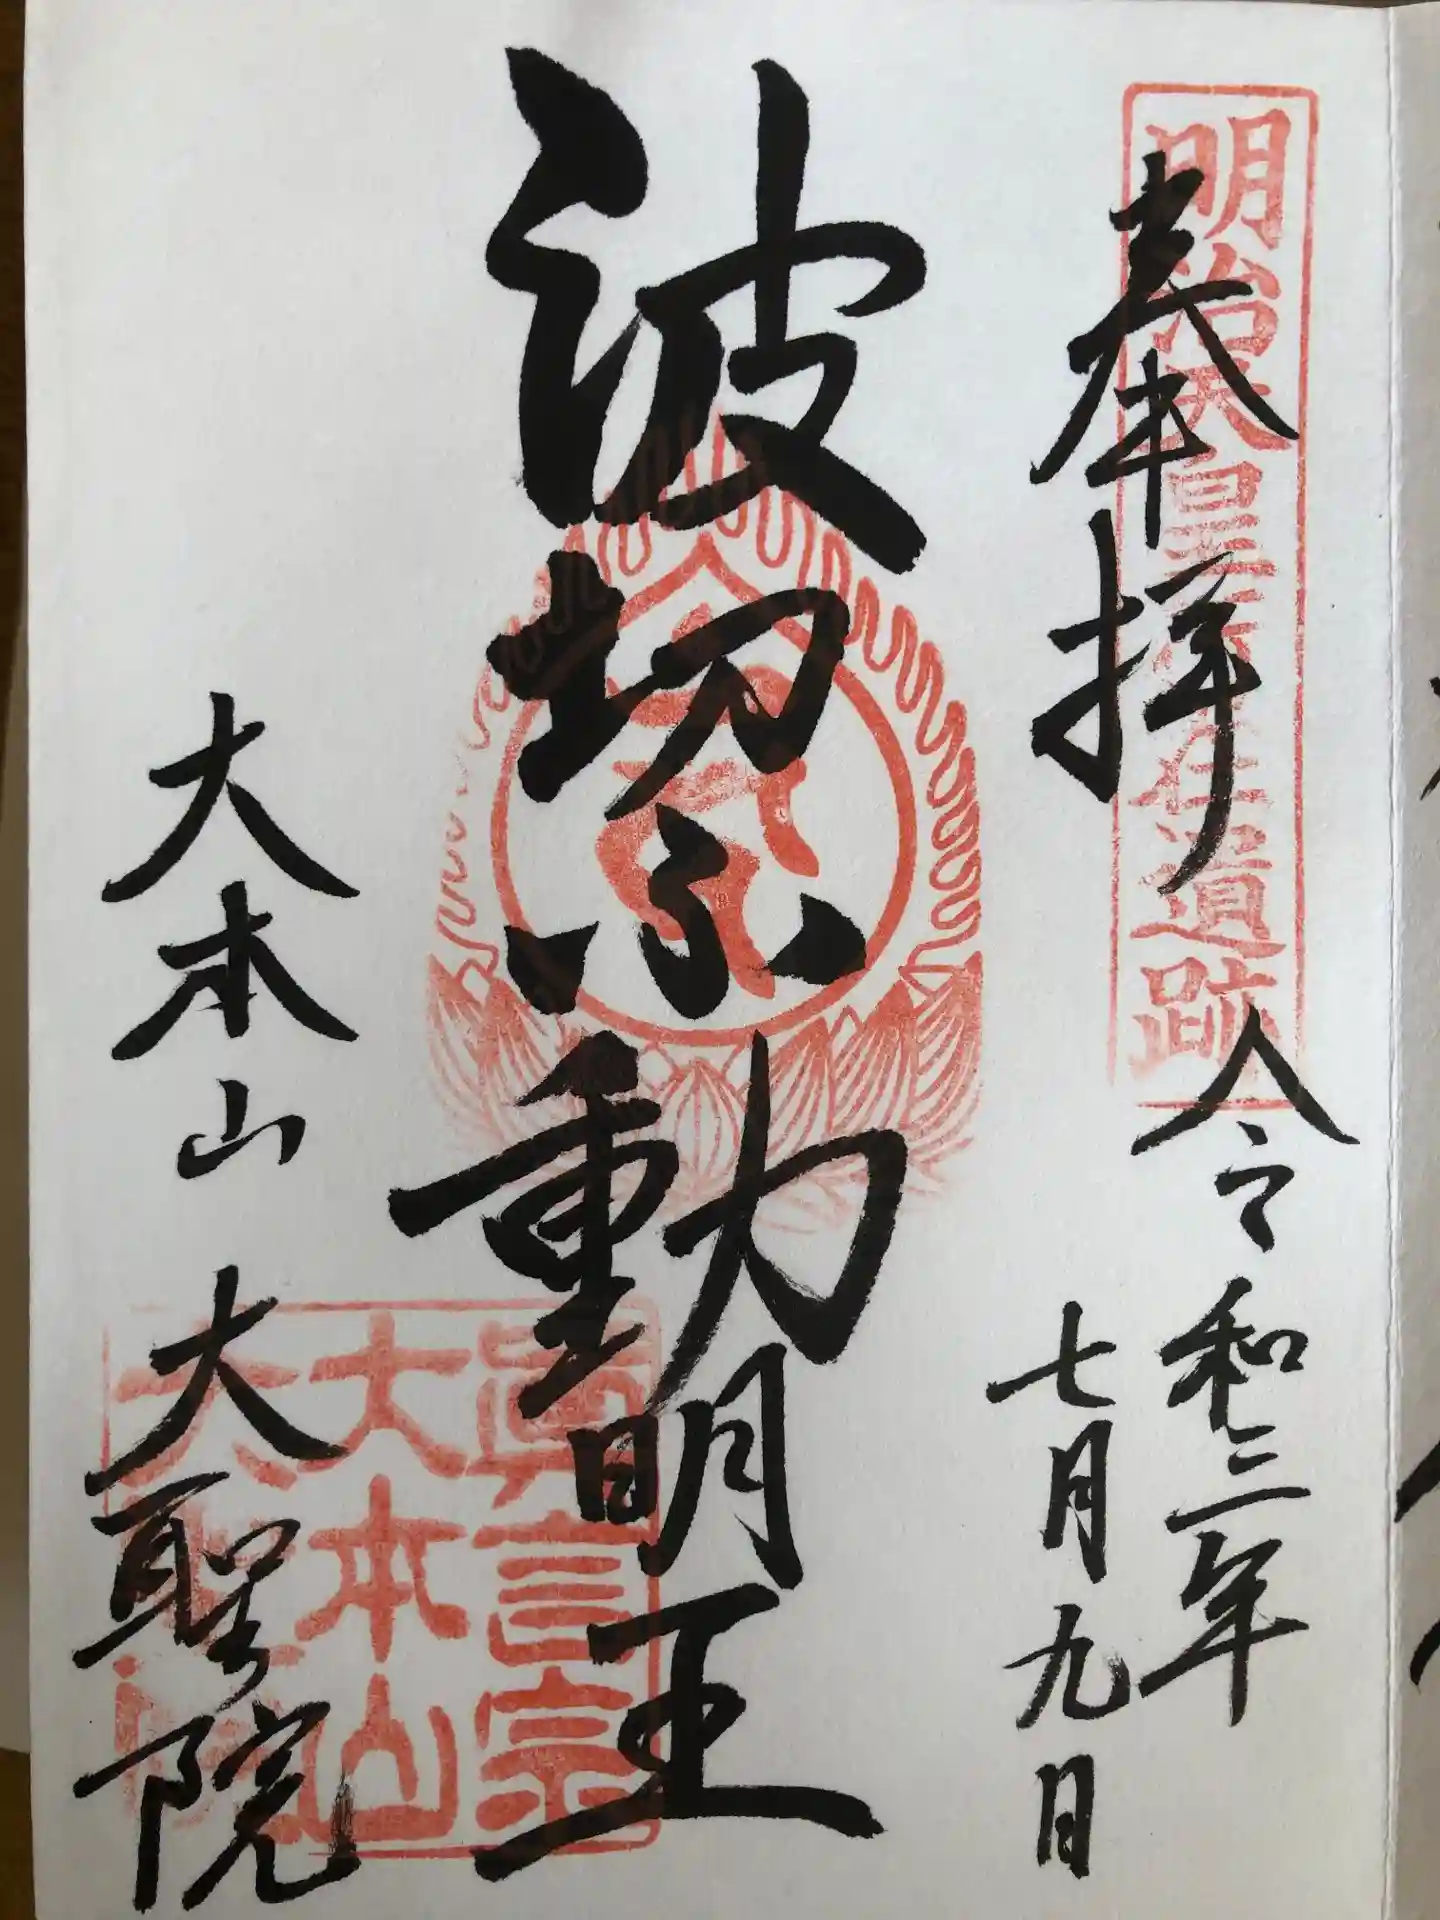 奉拝
明治天皇行在遺跡
令和三年
七月九日
波切不動明王
大本山
大聖院
真言宗
大本山